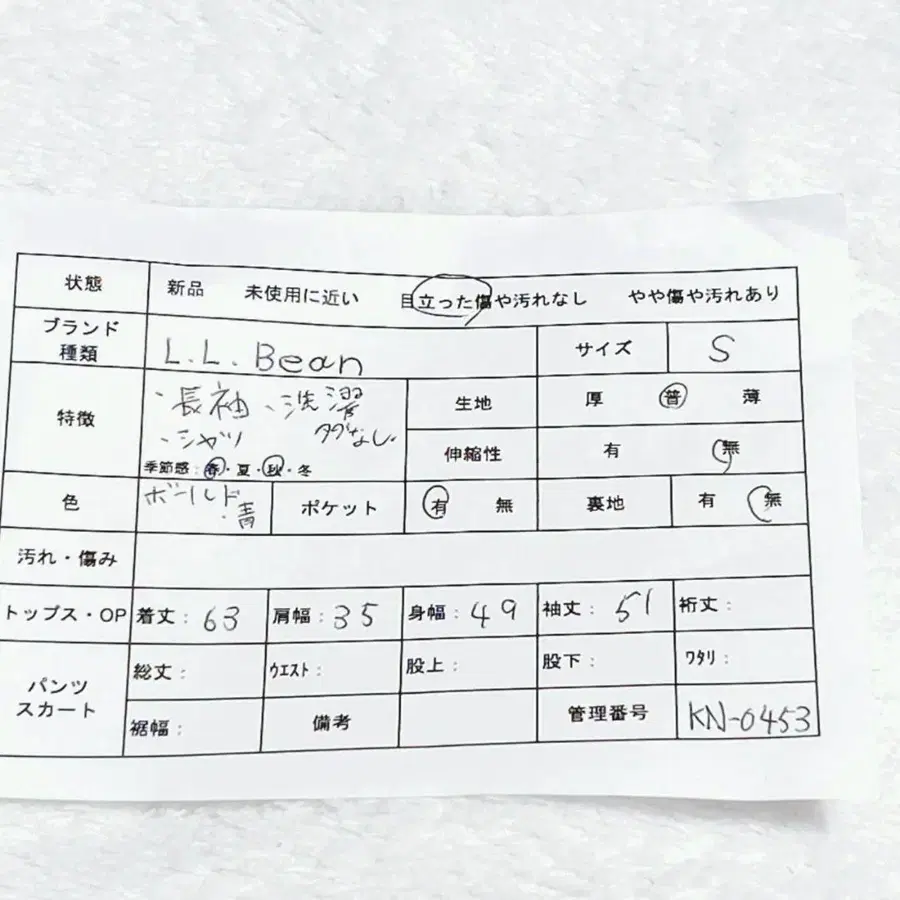 状態 新品 未使用に近い 目立った傷や汚れなし やや傷や汚れあり
ブランド
種類
L.L.Bean
サイズ S
特徴
・長袖 ・洗濯
・シャツ タグなし.
季節感:春・夏・秋・冬
生地 厚 普 薄
伸縮性 有 無
色
ボールド
・青
ポケット 有 無
裏地 有 無
汚れ・傷み
トップス・OP 着丈: 63 肩幅: 35 身幅: 49 袖丈: 51 裄丈:
パンツ
スカート
総丈: ウエスト: 股上: 股下: ワタリ:
裾幅: 備考 管理番号 KN-0453